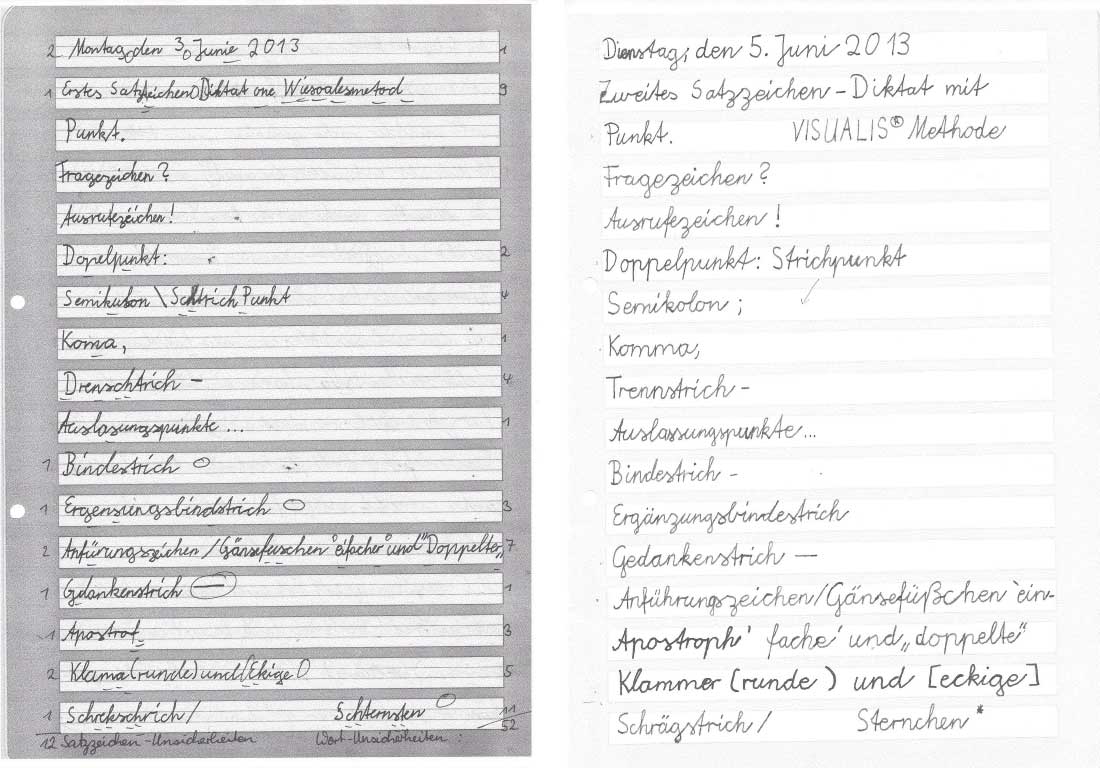 2 Montag, den 3. Junie 2013 1
1 Erstes Satzteichen Diktat one Wiesoalesmetod 9
Punkt.
Fragezeichen?
Ausrufezeichen!
Dopelpunkt: 2
Semikulon \ Schtrich Punkt 4
Koma, 1
Drenschtrich – 4
Auslasungspunkte ... 1
1 Bindestrich
1 Ergensungsbindstrich 3
2 Anfürungszeichen / Gänsefuschen "eifacher" und "Doppelter„ 7
1 Gdankenstrich — 1
1 Apostrof 3
2 Klama (runde) und (Ekige) 5
1 Schrekschrich / Schternsten 11
52
12 Satzzeichen-Unsicherheiten Wort-Unsicherheiten:
Dienstag, den 5. Juni 2013
Zweites Satzzeichen-Diktat mit
Punkt. VISUALIS® Methode
Fragezeichen?
Ausrufezeichen!
Doppelpunkt: Strichpunkt
Semikolon ;
Komma,
Trennstrich -
Auslassungspunkte...
Bindestrich -
Ergänzungsbindestrich
Gedankenstrich —
Anführungszeichen/Gänsefüßchen 'ein-
Apostroph' fache' und „doppelte"
Klammer (runde) und [eckige]
Schrägstrich / Sternchen *